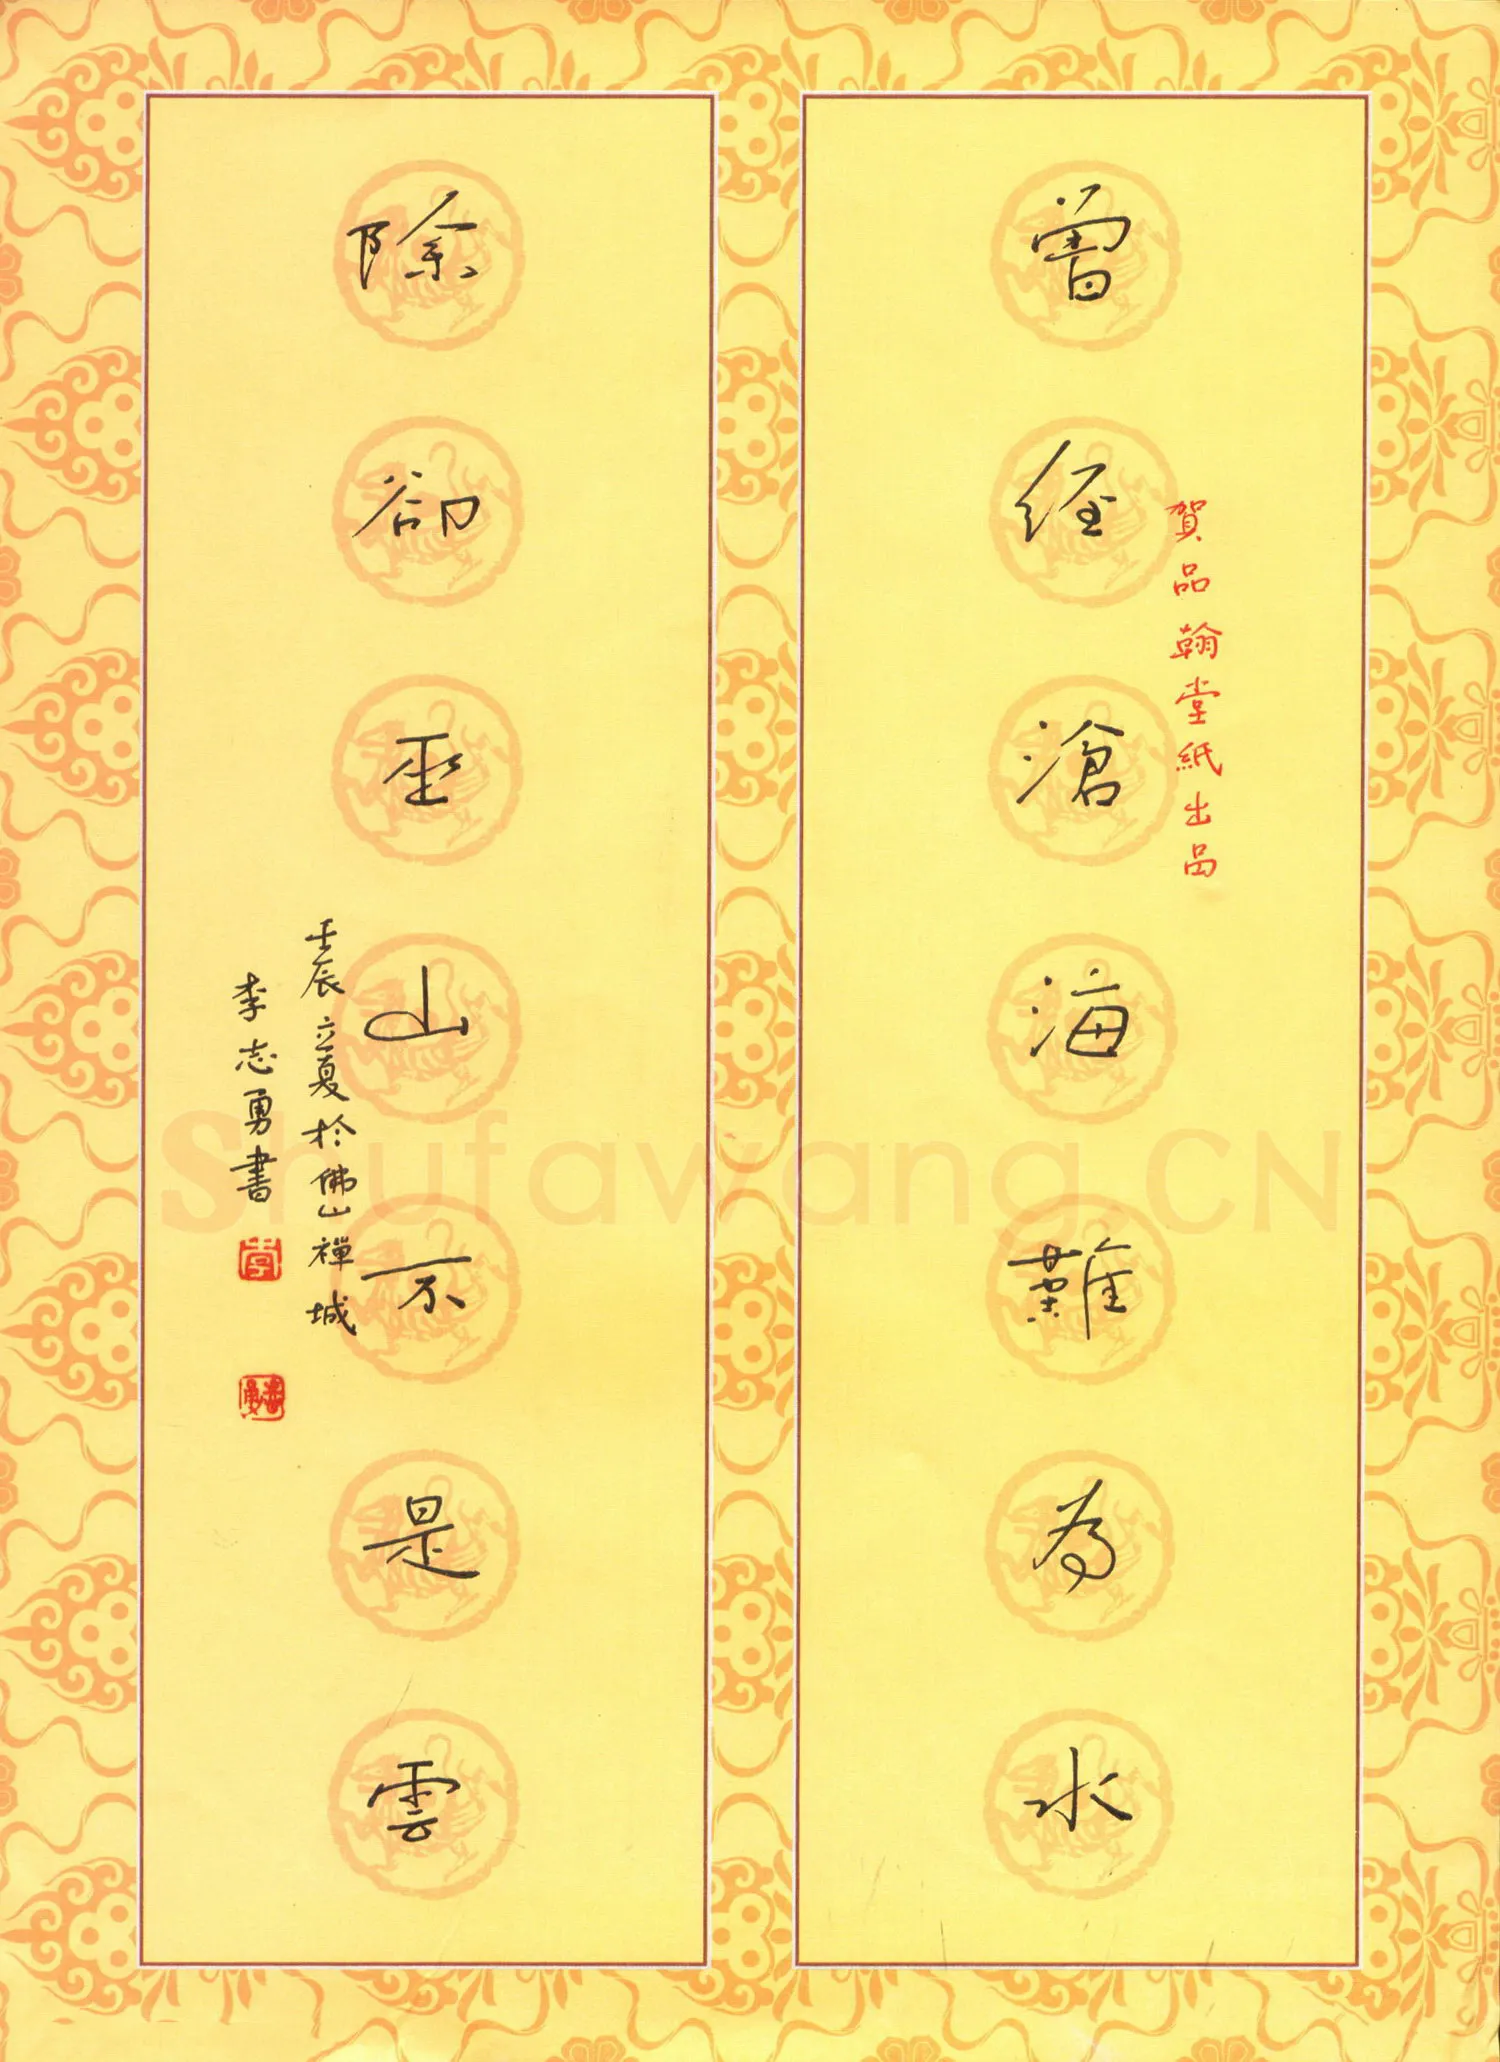 曾經滄海難為水
賀品翰堂紙出品
除卻巫山不是雲
壬辰立夏於佛山禪城
李志勇書
Shufawang.CN